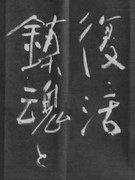 復活
鎮魂と